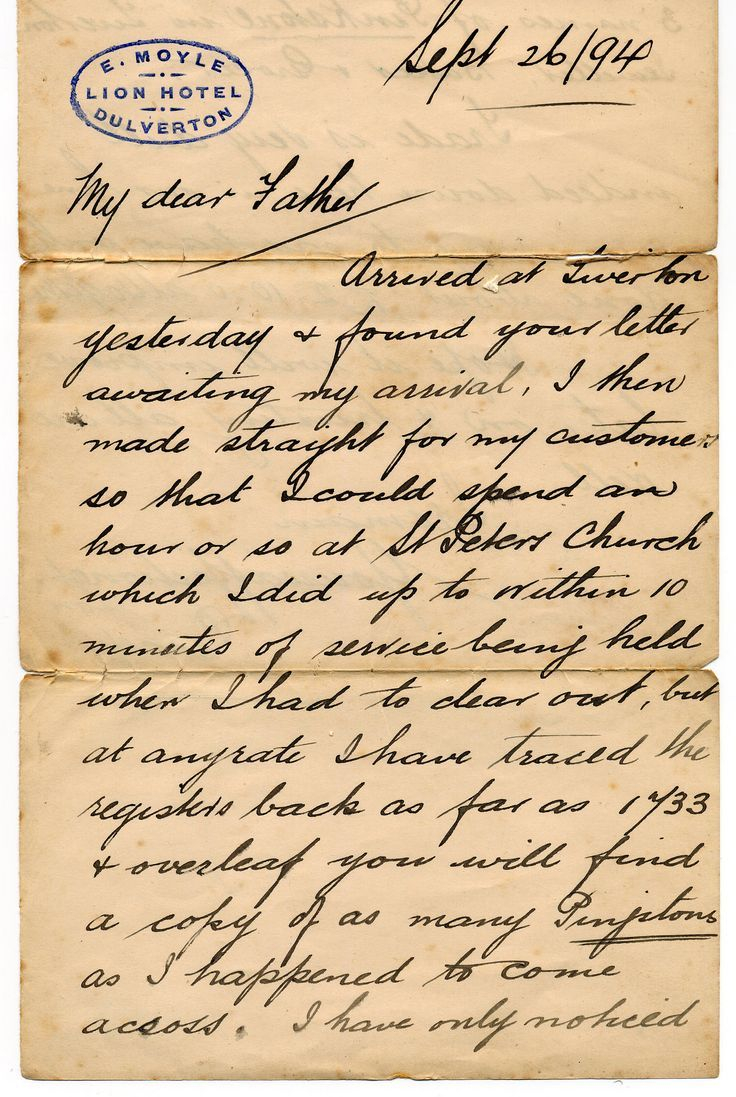 E. MOYLE
LION HOTEL
DULVERTON
Sept 26/94
My dear Father
Arrived at Tiverton
yesterday & found your letter
awaiting my arrival, I then
made straight for my customers
so that I could spend an
hour or so at St Peters Church
which I did up to within 10
minutes of service being held
when I had to clear out, but
at anyrate I have traced the
registers back as far as 1733
& overleaf you will find
a copy of as many Pingstons
as I happened to come
across. I have only noticed